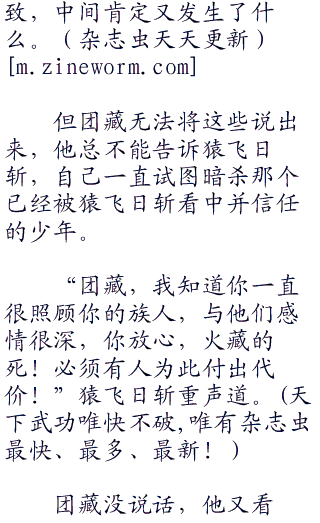 致，中间肯定又发生了什
么。（杂志虫天天更新）
[m.zineworm.com]
但团藏无法将这些说出
来，他总不能告诉猿飞日
斩，自己一直试图暗杀那个
已经被猿飞日斩看中并信任
的少年。
“团藏，我知道你一直
很照顾你的族人，与他们感
情很深，你放心，火藏的
死！必须有人为此付出代
价！”猿飞日斩重声道。(天
下武功唯快不破,唯有杂志虫
最快、最多、最新！)
团藏没说话，他又看